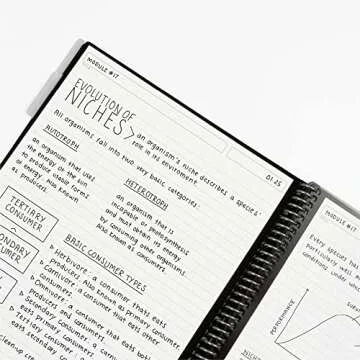 MODULE #17
01.25
EVOLUTION OF
NICHES
an organism's niche describes a species'
role in its environment.
All organisms fall into two very basic categories:
AUTOTROPH
an organism that uses
the energy of the sun
to produce usable forms
of energy. Also known
as producers.
HETEROTROPH
an organism that is
incapable of photosynthesis
and must obtain energy
by consuming other organisms.
Also known as consumers.
TERTIARY
CONSUMER
CONSUMER
BASIC CONSUMER TYPES
Herbivore: a consumer that eats
producers. Also known as primary consumer
Carnivore: a consumer that eats other
consumers.
Omnivore: a consumer that eats both
producers and consumers.
Secondary consumer: a
consuming primary
Tertiary consumer
eats secondary
MODULE #17
Every species has
particularly well
conditions under which